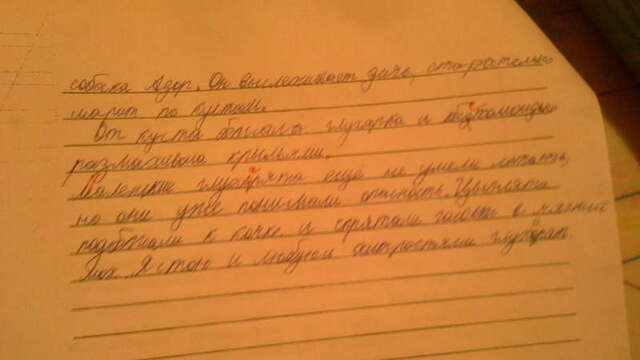 собака Азор. Он выслеживает дичь, старательно
шарит по кустам.
От куста бежала глухарка и
размахивала крыльями.
Маленькие глухарята ещё не умели летать,
но они уже понимали опасность. Цыплята
подбежали к кочке и спрятали головы в мягкий
мох. Я стою и любуюсь хитростями глухарят.